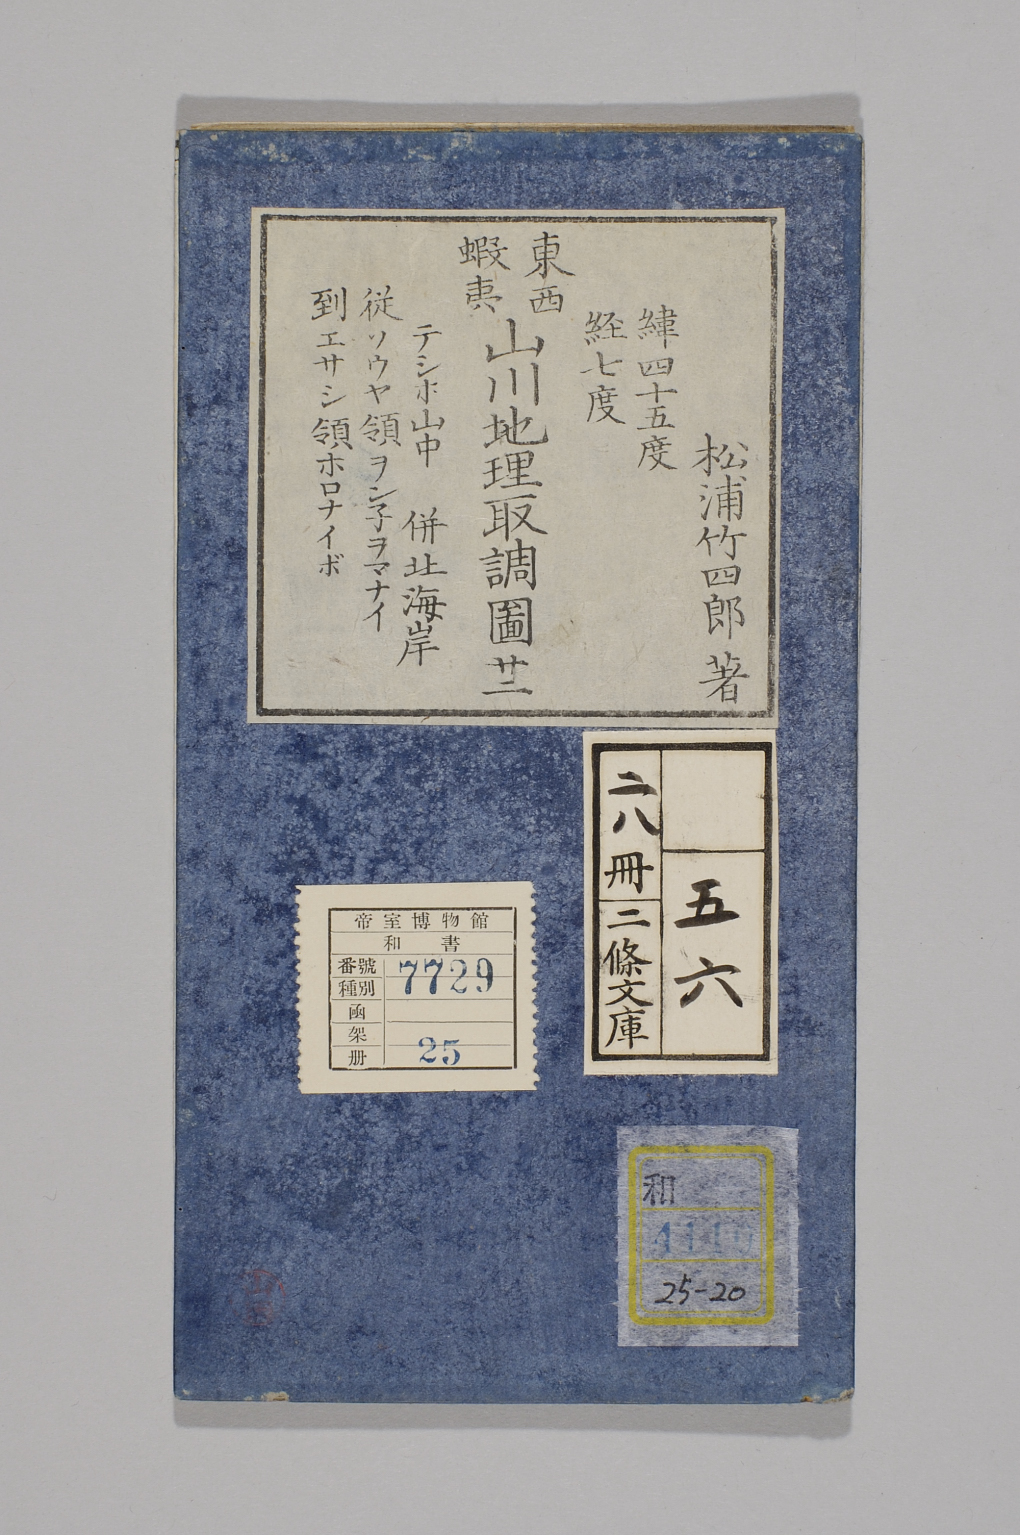 松浦竹四郎著
緯四十五度
経七度
東西
蝦夷
山川地理取調圖廿二
テシホ山中 併北海岸
従ソウヤ領ヲン子ヲマナイ
到エサシ領ホロナイボ
五六
二八冊
二條文庫
帝室博物館
和書
番號 7729
種別
函
架
册 25
和
25-20